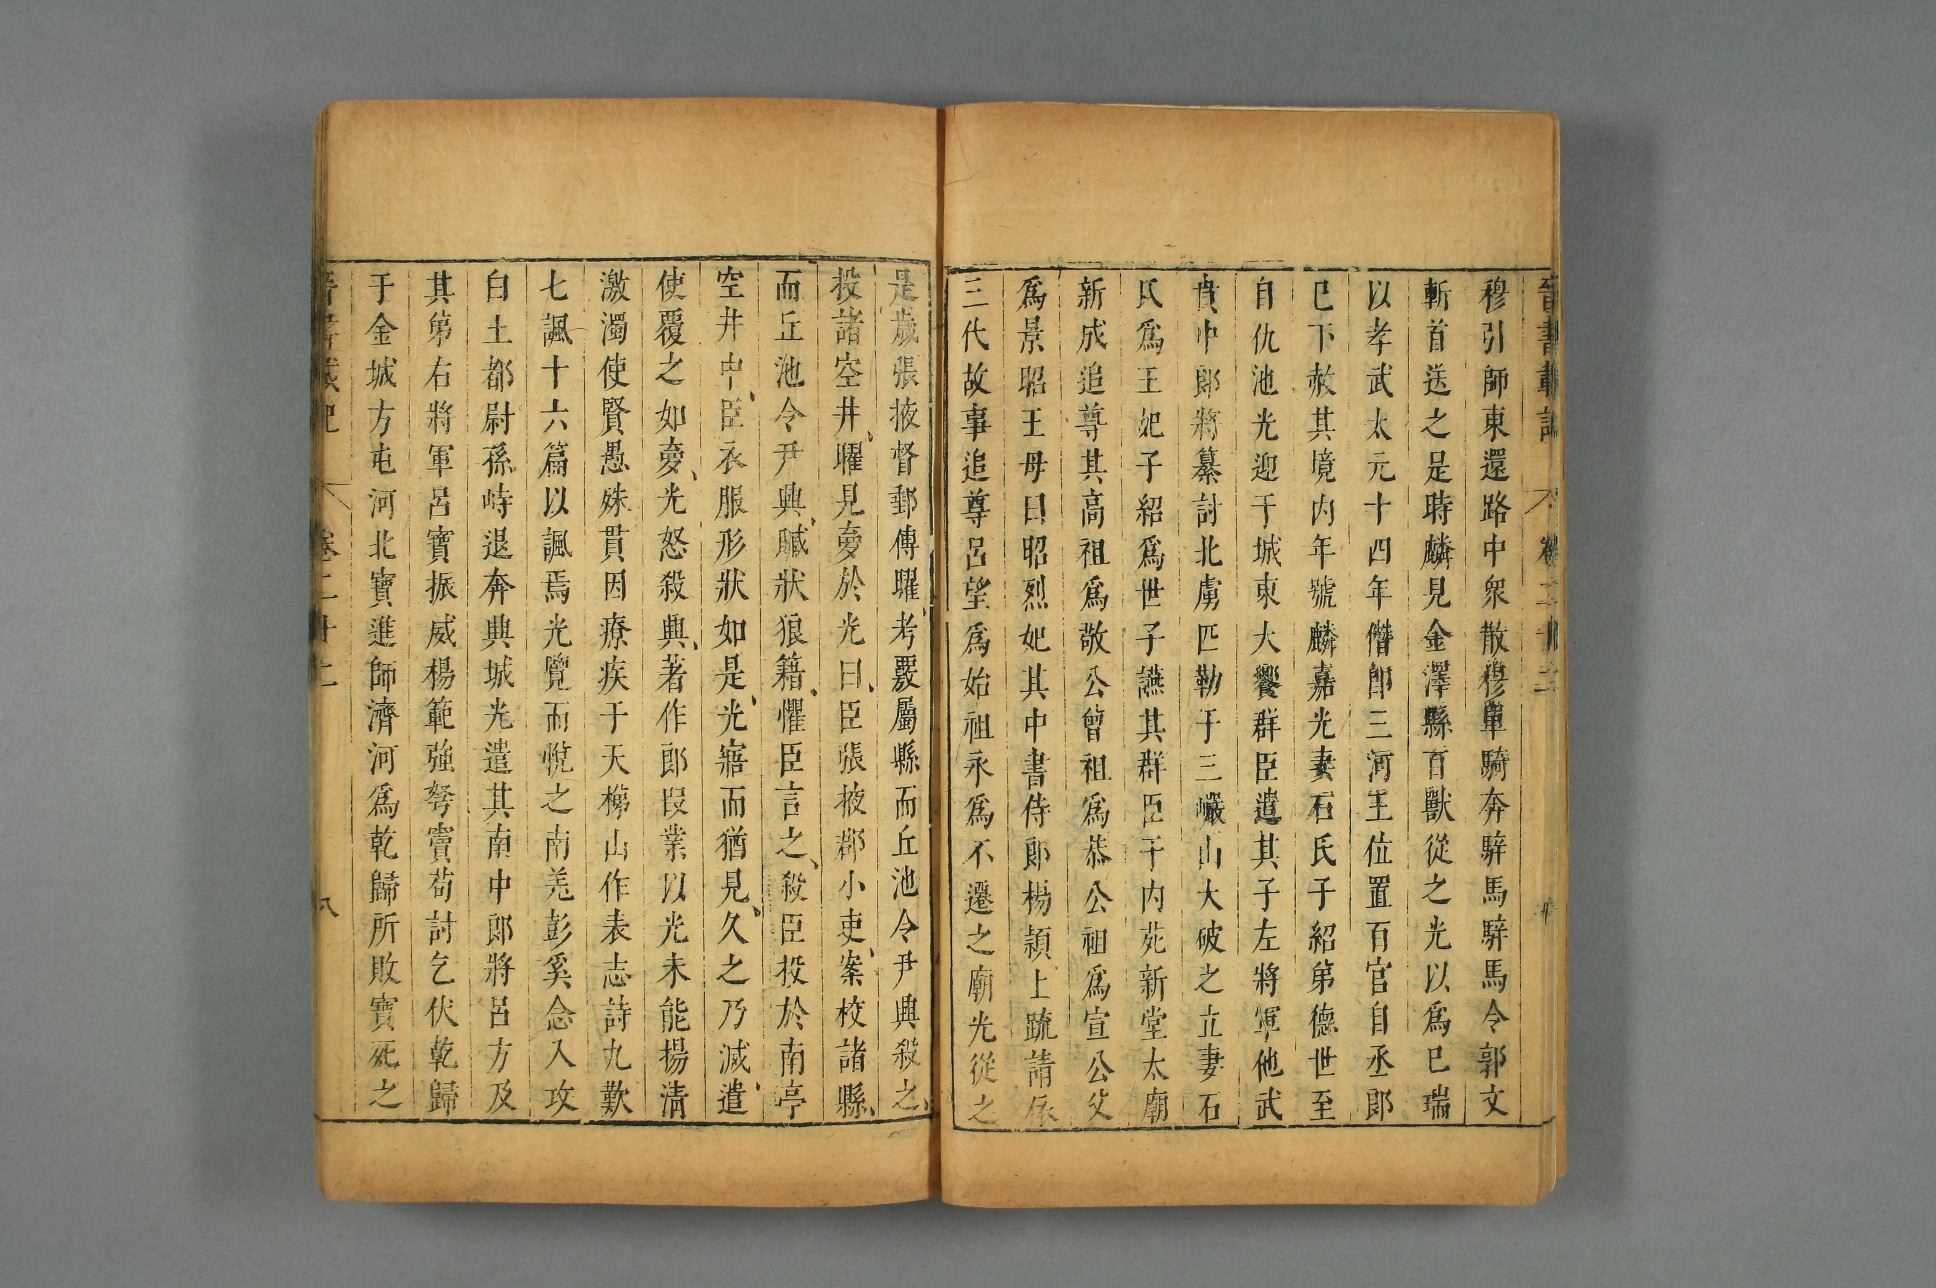 晉書載記 卷二十二
穆引師東還路中衆散穆單騎奔騂馬騂馬令郭文
斬首送之是時麟見金澤縣百獸從之光以爲已瑞
以孝武太元十四年僭卽三河王位置百官自丞郎
已下赦其境內年號麟嘉光妻石氏子紹弟德世至
自仇池光迎于城東大饗群臣遣其子左將軍他武
賁中郎將纂討北虜匹勒于三巖山大破之立妻石
氏爲王妃子紹爲世子讌其群臣于內苑新堂太廟
新成追尊其高祖爲敬公曾祖爲恭公祖爲宣公父
爲景昭王母曰昭烈妃其中書侍郎楊頴上疏請依
三代故事追尊呂望爲始祖永爲不遷之廟光從之
是歲張掖督郵傅曜考覈屬縣而丘池令尹興殺之
投諸空井曜見夢於光曰臣張掖郡小吏案校諸縣
而丘池令尹興贓狀狼籍懼臣言之殺臣投於南亭
空井中臣衣服形狀如是光寤而猶見久之乃滅遣
使覆之如夢光怒殺興著作郎段業以光未能揚清
激濁使賢愚殊貫因療疾于天梯山作表志詩九歎
七諷十六篇以諷焉光覽而悅之南羌彭奚念入攻
白土都尉孫峙退奔興城光遣其南中郎將呂方及
其弟右將軍呂寶振威楊範強弩竇苟討乞伏乾歸
于金城方屯河北寶進師濟河爲乾歸所敗寶死之
晉書載記 卷二十二 八